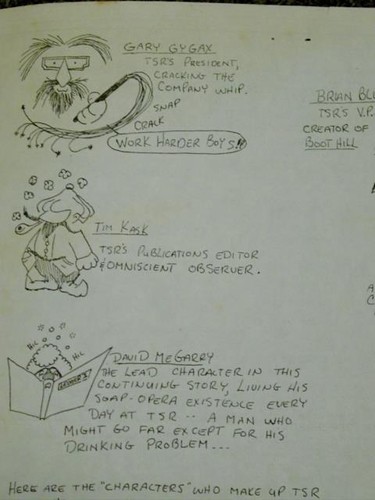 GARY GYGAX
TSR'S PRESIDENT,
CRACKING THE
COMPANY WHIP.
SNAP
CRACK
WORK HARDER BOYS!!
BRIAN BL
TSR'S V.P.
CREATOR OF
BOOT HILL
TIM KASK
TSR'S PUBLICATIONS EDITOR
& OMNISCIENT OBSERVER.
HIC
HIC
DAVID MEGARRY
THE LEAD CHARACTER IN THIS
CONTINUING STORY, LIVING HIS
SOAP-OPERA EXISTENCE EVERY
DAY AT TSR -- A MAN WHO
MIGHT GO FAR EXCEPT FOR HIS
DRINKING PROBLEM...
HERE ARE THE "CHARACTERS" WHO MAKE UP TSR